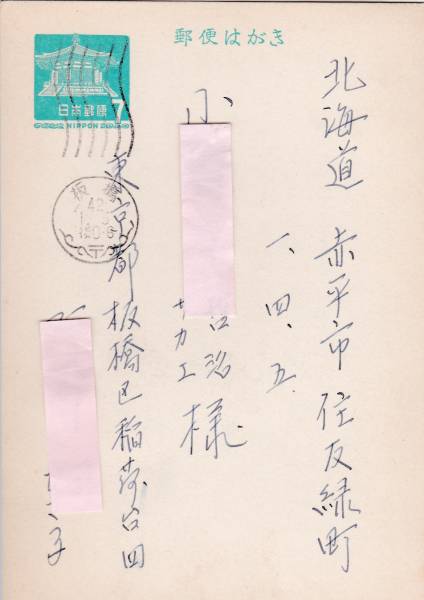 郵便はがき
日本郵便
NIPPON
7
板橋
42
北海道 赤平市 住友緑町
一、四、五
小
吉治
サカエ
様
東京都板橋区稲荷台四